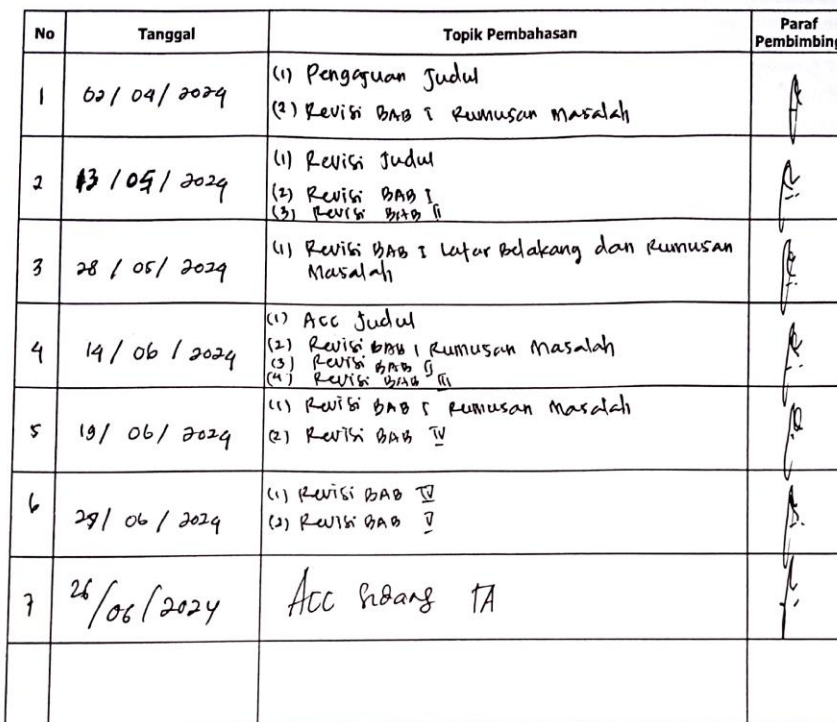 No Tanggal Topik Pembahasan Paraf Pembimbing
1 02/04/2024 (1) Pengajuan Judul
(2) Revisi BAB I Rumusan Masalah
2 13/05/2024 (1) Revisi Judul
(2) Revisi BAB I
(3) Revisi BAB II
3 28/05/2024 (1) Revisi BAB I Latar Belakang dan Rumusan
Masalah
4 14/06/2024 (1) Acc Judul
(2) Revisi BAB I Rumusan Masalah
(3) Revisi BAB II
(4) Revisi BAB III
5 19/06/2024 (1) Revisi BAB I Rumusan Masalah
(2) Revisi BAB IV
6 (1) Revisi BAB IV
(2) Revisi BAB V
7 26/06/2024 Acc Sidang TA